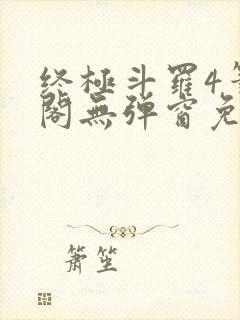 终極斗羅4笔
閣無弹窗免
萧笙